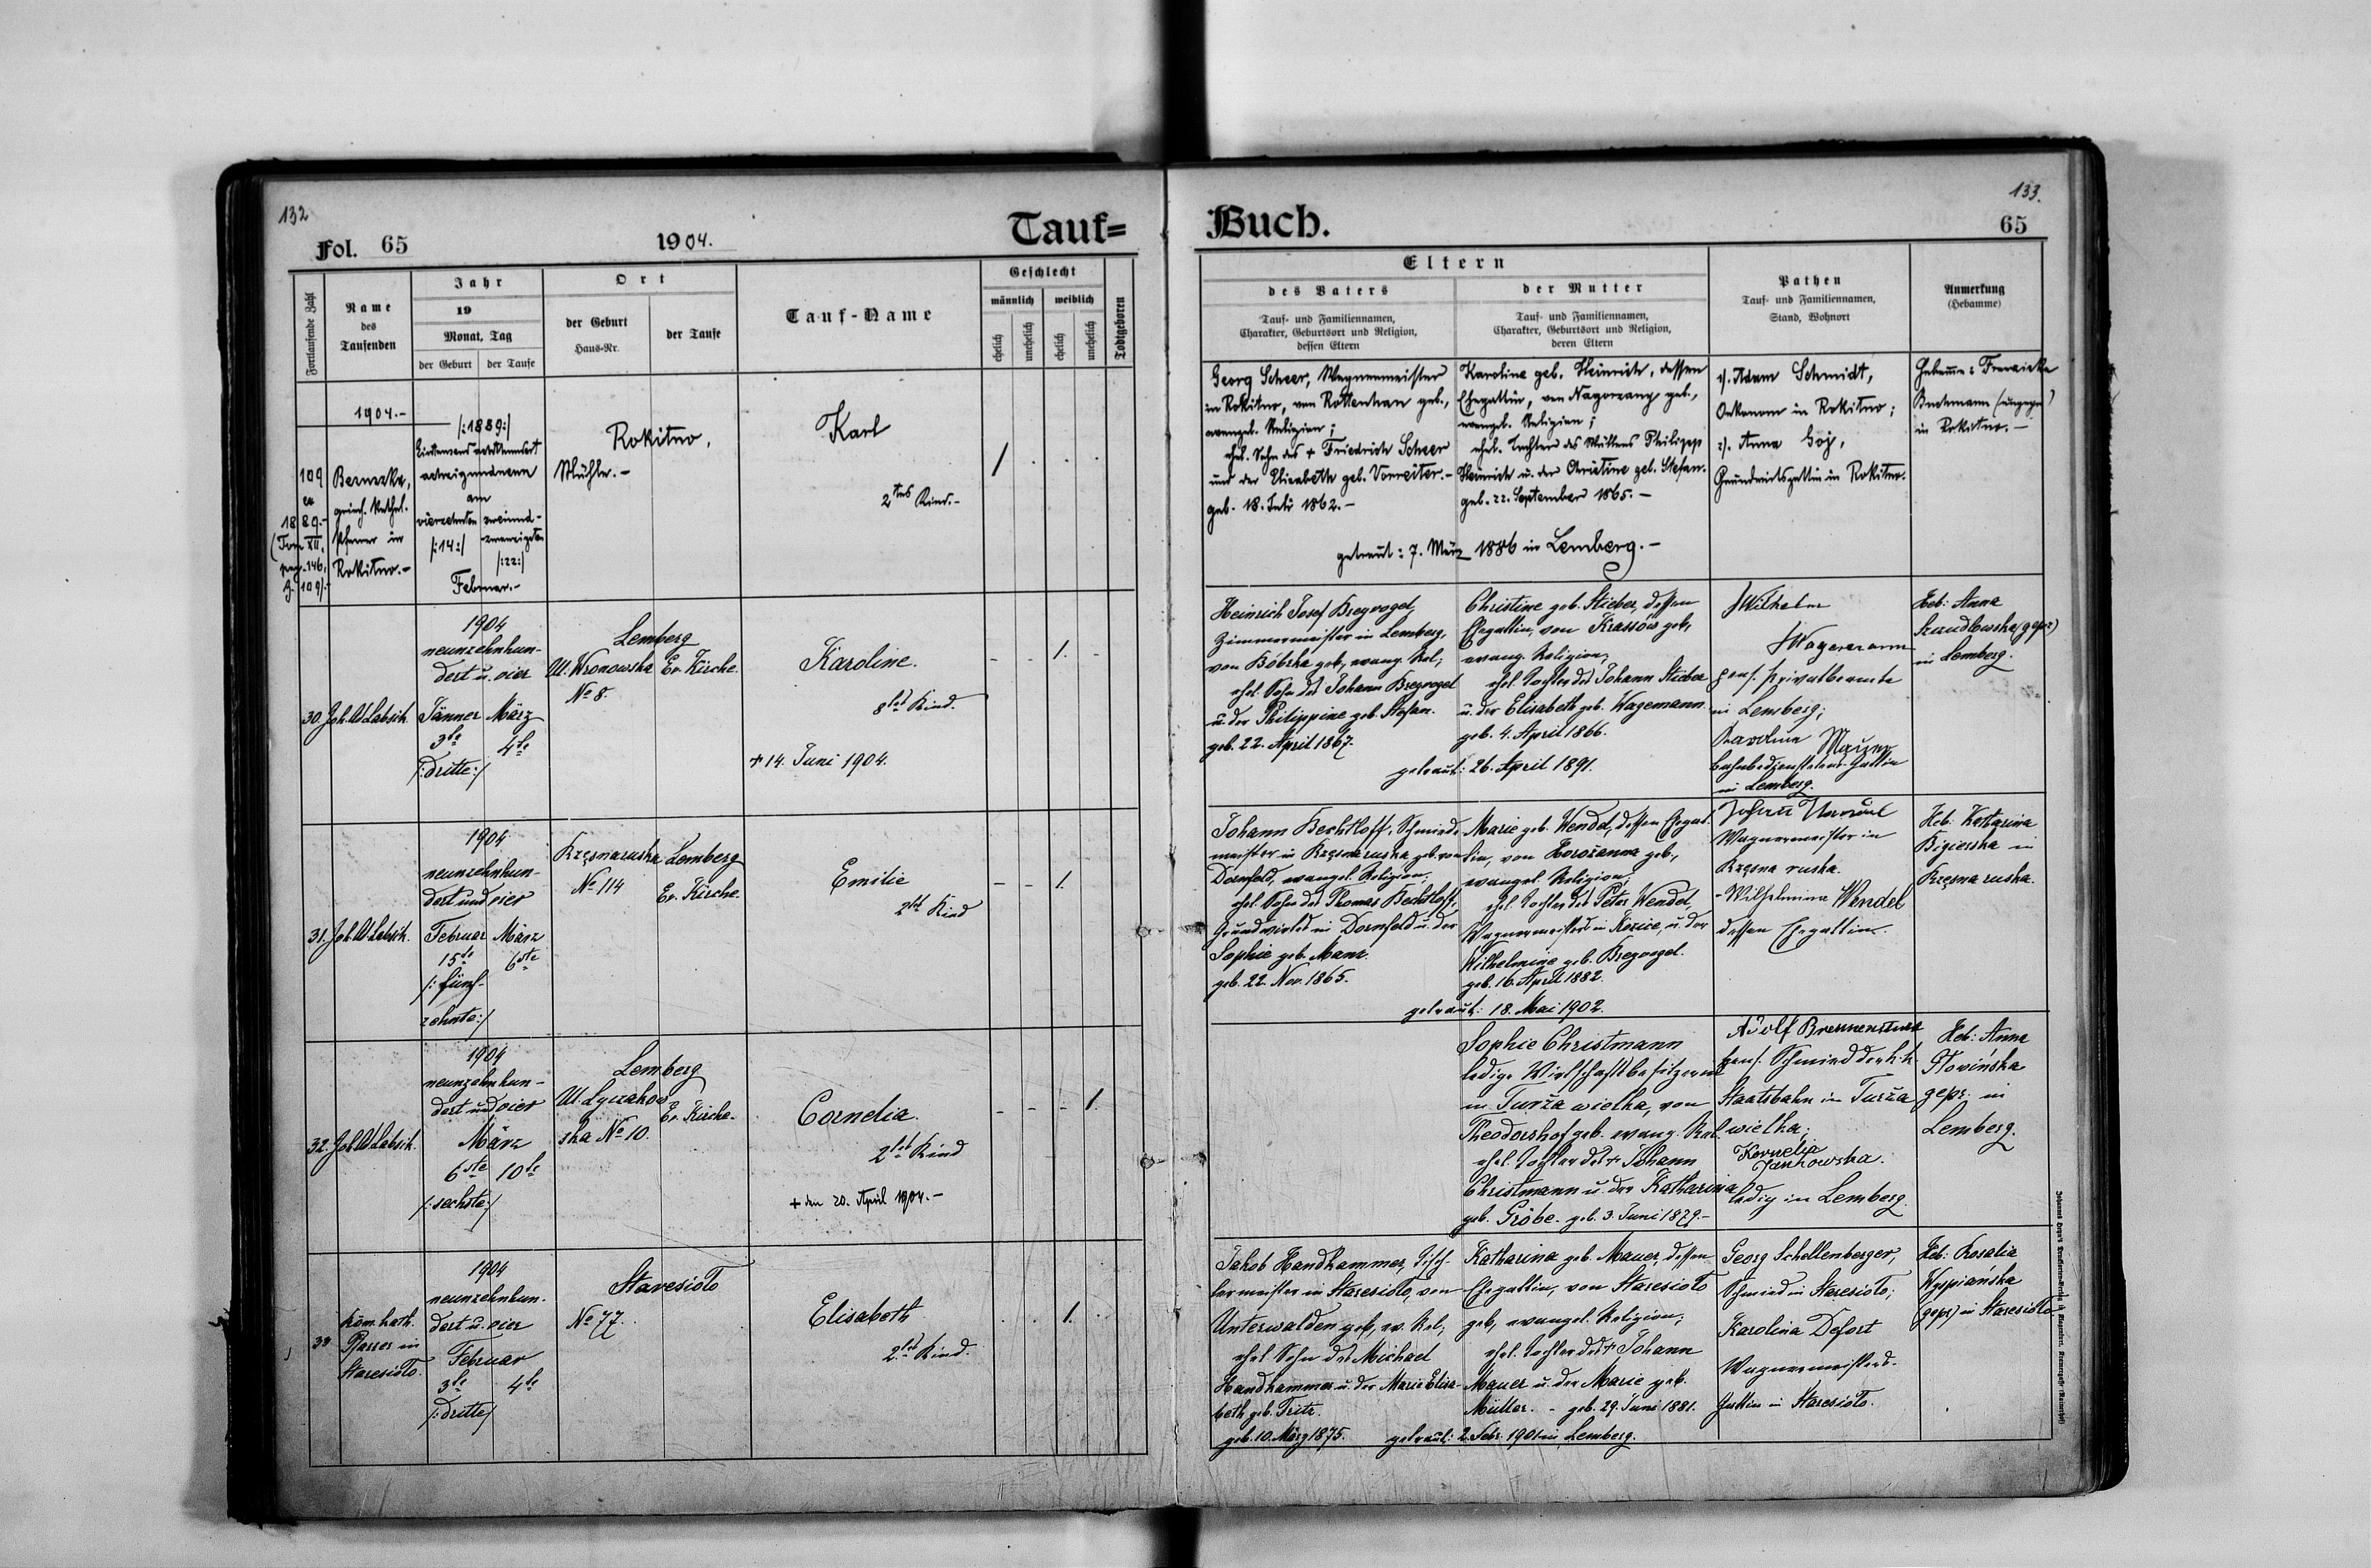 132
Fol. 65
1904.
Tauf=
Fortlaufende Zahl
Name
des
Taufenden
Jahr
19
Monat, Tag
der Geburt
der Taufe
Ort
der Geburt
Haus-Nr.
der Taufe
Tauf-Name
Geschlecht
männlich
weiblich
ehelich
unehelich
ehelich
unehelich
Todtgeboren
1904.-
109
ex
1889.-
(Tom XII,
pag. 146,
Z. 109/-
griech. kathol.
Pfarrer in
Rokitno.-
/:1889:/
Eintausend achthundert
achtzigundneun
am
vierzehnten
/:14:/
zweiund-
zwanzigsten
/:22:/
Februar.-
Rokitno,
Mühle.-
Karl
2tes Kind.-
/
30.
1904
neunzehnhun-
dert u. vier
Jänner
3te
/:dritte:/
März
4te
Lemberg
Ul. Wronowska
No 8.
Ev. Kirche.
Karoline.
8tes Kind.
+ 14. Juni 1904.
- - 1. -
31.
1904
neunzehnhun-
dert und vier
Februar
15te
/:fünf-
zehnte:/
März
6ste
Rzęsnaruska
No 114
Lemberg
Ev. Kirche.
Emilie
2tes Kind
- - 1.
32.
1904
neunzehnhun-
dert und vier
März
6ste
10te
/:sechste:/
Lemberg
Ul. Łyczakow
ska No 10.
Ev. Kirche.
Cornelia.
2tes Kind
+ den 20. April 1904.-
- - - 1.
33
Röm. kath.
Pfarrer in
Staresioło.
1904
neunzehnhun-
dert u. vier
Februar
3te
4te
/:dritte/
Staresioło
No 77.
Elisabeth
2tes Kind.
. . 1. .
133.
Buch.
65
Eltern
des Vaters
Tauf- und Familiennamen,
Charakter, Geburtsort und Religion,
dessen Eltern
der Mutter
Tauf- und Familiennamen,
Charakter, Geburtsort und Religion,
deren Eltern
Pathen
Tauf- und Familiennamen,
Stand, Wohnort
Anmerkung
(Hebamme)
Georg Scheer, Wagnermeister
in Rokitno, von Rottenhan geb.,
evangel. Religion;
ehel. Sohn des + Friedrich Scheer
und der Elisabeth geb. Vorreiter.-
geb. 18. Juli 1862.-
Karoline geb. Heinrich, dessen
Ehegattin, von Nagorzany geb.,
evangel. Religion;
ehel. Tochter des Müllers Philipp
Heinrich u. der Christine geb. Stefan.
geb. 22. September 1865.-
getraut: 7. März 1886 in Lemberg.-
1). Adam Schmidt,
Oekonom in Rokitno;
2). Anna Goj,
Grundwirtsgattin in Rokitno.
in Rokitno.-
Heinrich Josef Bregvogel,
Zimmermeister in Lemberg,
von Bóbrka geb., evang. Rel;
ehel. Sohn des Johann Bregvogel
u. der Philippine geb. Stefan.
geb. 22. April 1867.
Christine geb. Stieber, dessen
Ehegattin, von Krassów geb.,
evang. Religion;
ehel. Tochter des Johann Stieber
u. der Elisabeth geb. Wagemann.
geb. 4. April 1866.
getraut: 26. April 1891.
Wilhelm
Wagemann
pens. Privatbeamte
in Lemberg;
Karoline Mauer
Bahnbediensteten-Gattin
in Lemberg.
Heb: Anna
Szandlowska (gepr)
in Lemberg.
Johann Bechtloff, Schmiede-
meister in Rzęsnaruska geb. von
Dornfeld, evangel. Religion,
ehel. Sohn des Thomas Bechtloff,
Grundwirtes in Dornfeld u. der
Sophie geb. Manz.
geb. 22. Nov. 1865.
Marie geb. Wendel, dessen Ehegat-
tin, von Horożanna geb.,
evangel. Religion;
ehel. Tochter des Peter Wendel,
Wagnermeisters in Kozice, u. der
Wilhelmine geb. Bregvogel.
geb. 16. April 1882.
getraut: 18. Mai 1902.
Johann
Wagnermeister in
Rzęsna ruska.
- Wilhelmine Wendel
dessen Ehegattin.
Heb: Katharina
in
Rzęsna ruska.
Sophie Christmann
ledige Wirtschaftsbesitzerin
in Turza wielka, von
Theodorshof geb. evang. Rel.
ehel. Tochter des + Johann
Christmann u. der Katharina
geb. Gröbe. geb. 3. Juni 1879.-
Adolf
pens. Schmied der k.k.
Staatsbahn in Turza
wielka;
Kornelja
Jankowska.
ledig in Lemberg.
Heb: Anna
Słowińska
gepr: in
Lemberg.
Jakob Handkammer, Tisch-
lermeister in Staresioło, von
Unterwalden geb., ev. Rel;
ehel. Sohn des Michael
Handkammer u. der Marie Elisa-
beth geb. Fritz.
geb. 10. März 1875.
Katharina geb. Mauer, dessen
Ehegattin, von Staresioło
geb., evangel. Religion;
ehel. Tochter des + Johann
Mauer u. der Marie geb.
Müller. - geb. 29. Juni 1881.
getraut: 2. Febr. 1901 in Lemberg.
Georg Schellenberger,
Schmied in Staresioło;
Karolina Defort
Wagnermeisters-
Gattin in Staresioło.
Heb: Rosalia
Wyspiańska
(gepr) in Staresioło.